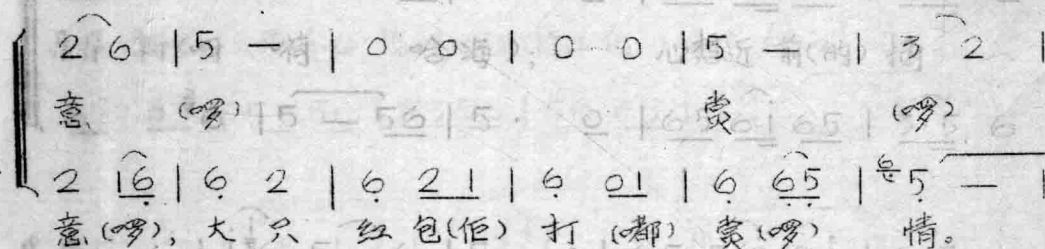 2 6 | 5 — | 0 0 | 0 0 | 5 — | 3 2 |
意 (啰) 赏 (啰)
2 1̲6̲̣ | 6̣ 2 | 6̣ 2̲ 1̲ | 6̣ 0̲1̲ | 6̣ 6̲̣5̲̣ | 5̣ — |
意(啰), 大 只 红 包(佢) 打 (嘟) 赏(啰) 情。